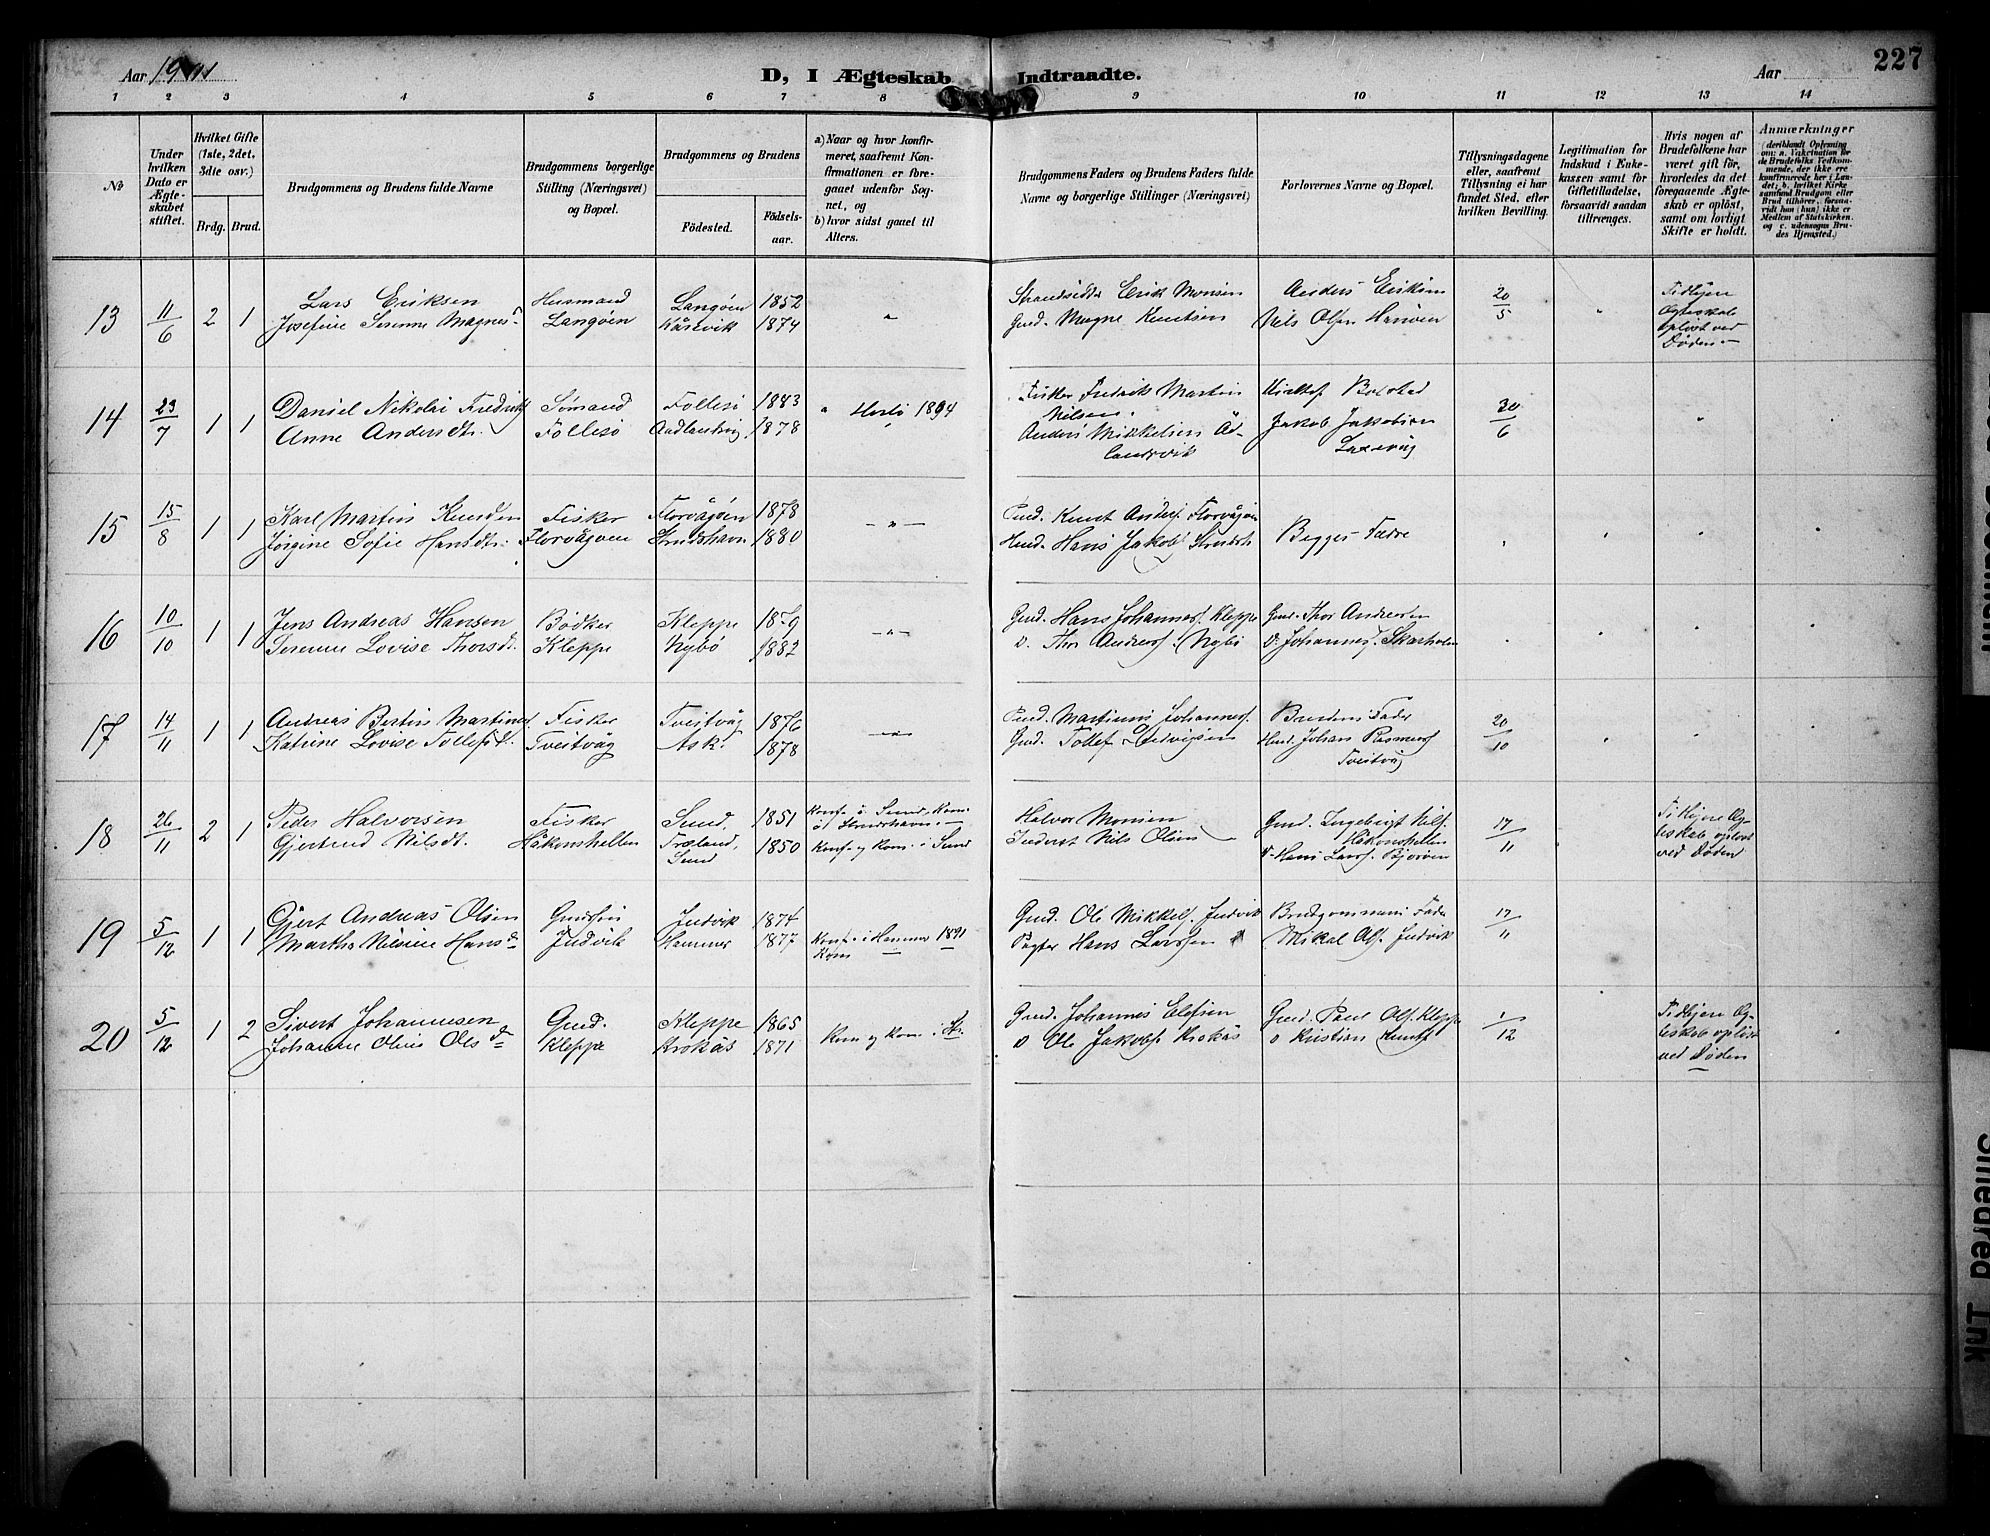 Aar 1901
D, I Ægteskab Indtraadte.
Aar
227
1 2 3 4 5 6 7 8 9 10 11 12 13 14
No
Under hvilken Dato er Ægteskabet stiftet.
Hvilket Gifte (1ste, 2det, 3die osv.)
Brdg. Brud.
Brudgommens og Brudens fulde Navne
Brudgommens borgerlige Stilling (Næringsvei) og Bopæl.
Brudgommens og Brudens
Födested.
Födselsaar.
a) Naar og hvor konfirmeret, saafremt Konfirmationen er foregaaet udenfor Sognet, og
b) hvor sidst gaaet til Alters.
Brudgommens Faders og Brudens Faders fulde Navne og borgerlige Stillinger (Næringsvei)
Forlovernes Navne og Bopæl.
Tillysningsdagene eller, saafremt Tillysning ei har fundet Sted, efter hvilken Bevilling.
Legitimation for Indskud i Enkekassen samt for Giftetilladelse, forsaavidt saadan tiltrænges.
Hvis nogen af Brudefolkene har været gift för, hvorledes da det foregaaende Ægteskab er oplöst, samt om lovligt Skifte er holdt.
Anmærkninger
(deriblandt Oplysning om: a. Vakcination for de Brudefolks Vedkommende, der ikke ere konfirmerede her i Landet; b. hvilket Kirkesamfund Brudgom eller Brud tilhörer, forsaavidt han (hun) ikke er Medlem af Statskirken, og c. udensogns Brudes Hjemsted.)
13 11/6 2 1 Lars Eriksen Husmand Langöen 1852 " Strandsidder Erik Monsen Anders Eriksen 20/5 Tidligere
Josefine Serenne Magnesd. Langöen 1874 Gmd. Magne Knutsen Nils Olsen Ægteskab
oplöst ved
Döden
14 23/7 1 1 Daniel Nikolai Fredriks. Sömand Follesö 1883 Herlö 1894 Fisker Fredrik Martin 30/6
Nilsen.
Anne Andersdtr. Follesö 1878 Anders Mikkelsen Jakob Jakobsen
Laxevåg
15 15/8 1 1 Karl Martin Knudsen Fisker Florvågöen 1878 - " - Knut Anders. Florvågöen Begges Fædre
Jörgine Sofie Hansdtr. Florvågöen Strudshavn 1880 Hans Jakobs.
16 10/10 1 1 Jens Andreas Hansen Bödker Kleppe 1879 - " - Gmd. Hans Johannes. Kleppe Gmd. Thor Andersen
Serenne Lovise Thorsdt. Kleppe Nybö 1882 D. Thor Anders. Nybö D. Johannes. Skarholm
17 14/11 1 1 Andreas Bertin Martines. Fisker Tveitvåg 1876 - " - Martinus Johannes. Brudens Fader 20/10
Katrine Lovise Tollefsd. Tveitvåg Ask. 1878 Gmd. Tollef Ludvigsen Johan Rasmus.
Tveitvåg
18 26/11 2 1 Peder Halvorsen Fisker Sund, 1851 Konf. i Sund, Kom. Halvor Monsen Gmd. Ingebrigt Nils. 17/11 Tidligere Æg-
i Strudshavn. Håkonshellen teskab oplöst
Gjertrud Nilsdt. Håkonshellen Træland, 1850 Konf. og Kom. i Sund Inderst Nils Olsen Hans Lars. Bjoröen ved Döden
Sund
19 5/12 1 1 Gjert Andreas Olsen Judvik 1874 Gmd. Ole Mikkels. Judvik Brudgommens Fader 17/11
Martha Nilsine Hansd. Judvik Hammer 1877 Konf. i Hammer 1891 Hans Larssen Mikal Ols. Judvik
Kom
20 5/12 1 2 Sivert Johannesen Gmd. Kleppe 1865 Gmd. Johannes Elefsen Gmd. Paul Ols. Kleppe 1/12 Tidligere Æg-
Johanne Olsd. Kleppe Krokås 1871 D Ole Jakobs. Krokås D Kristian Knuts. teskab oplöst
ved Döden